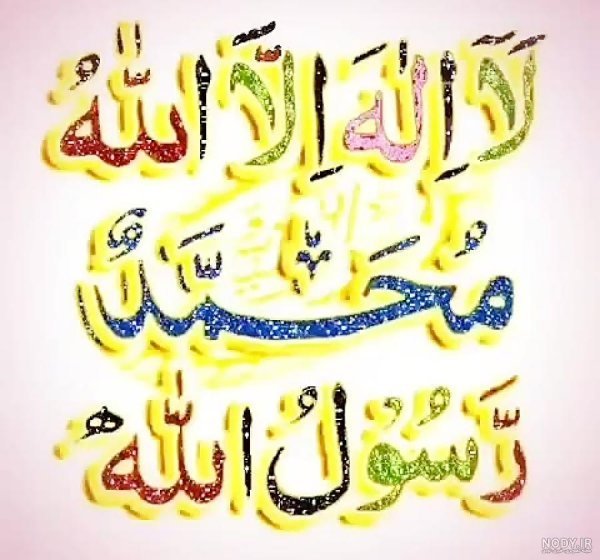 لَا اِلٰهَ اِلَّا اللّٰهُ
مُحَمَّدٌ
رَّسُوْلُ اللّٰهِ
NODY.IR